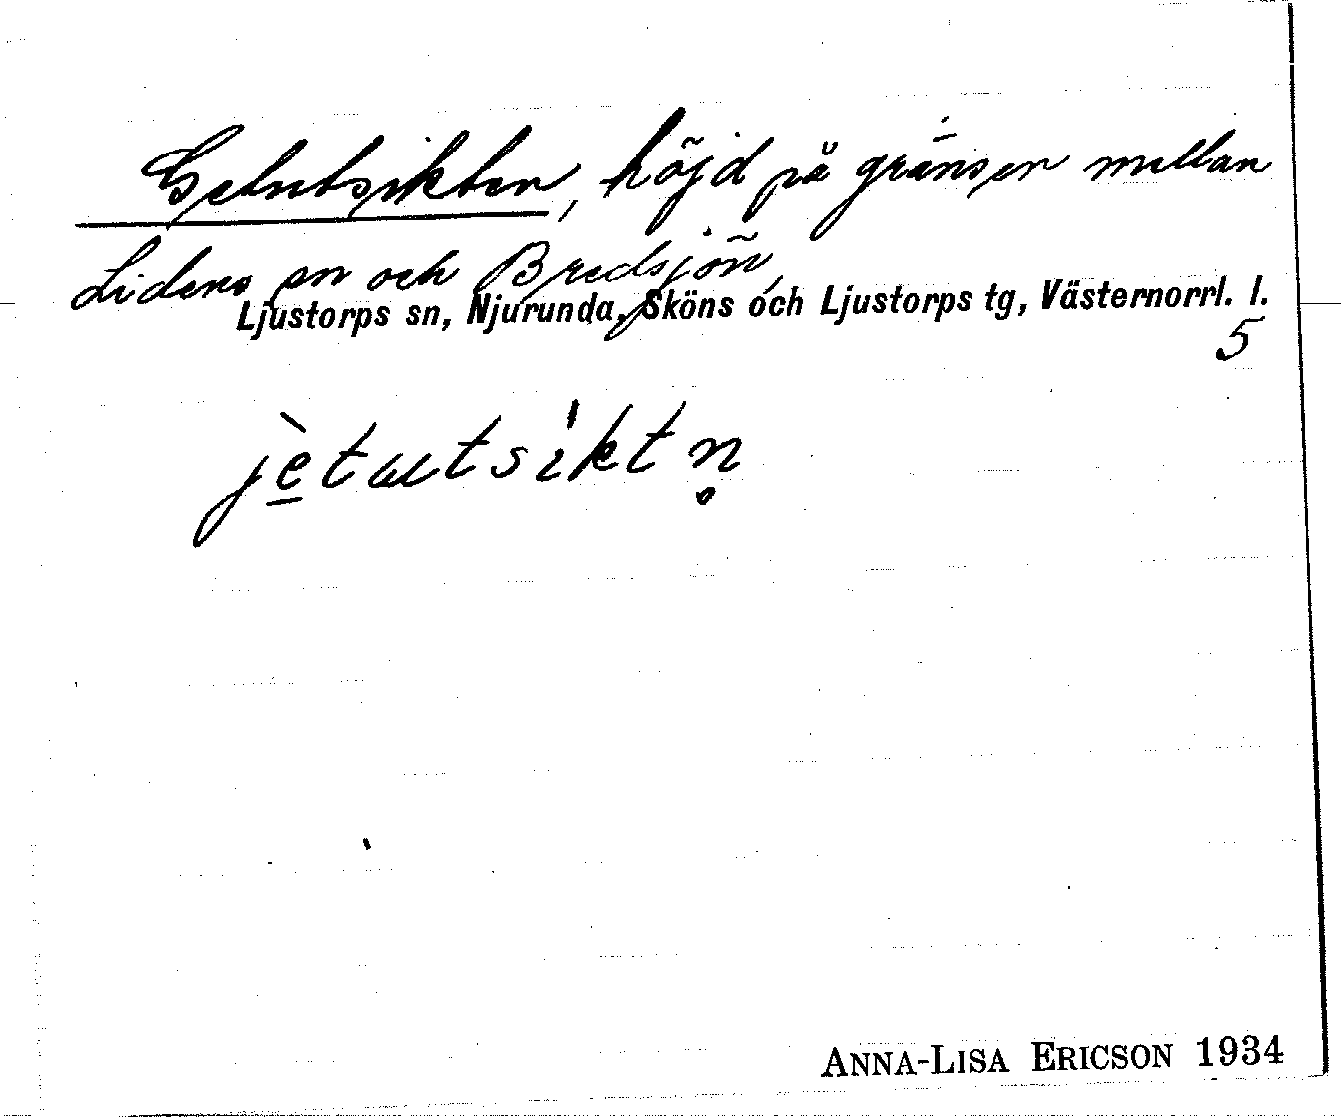 Getutsikten, höjd på gränsen mellan
Lidens sn och Bredsjön,
Ljustorps sn, Njurunda, Sköns och Ljustorps tg, Västernorrl. l.
5
jètutsiktn̥
ANNA-LISA ERICSON 1934